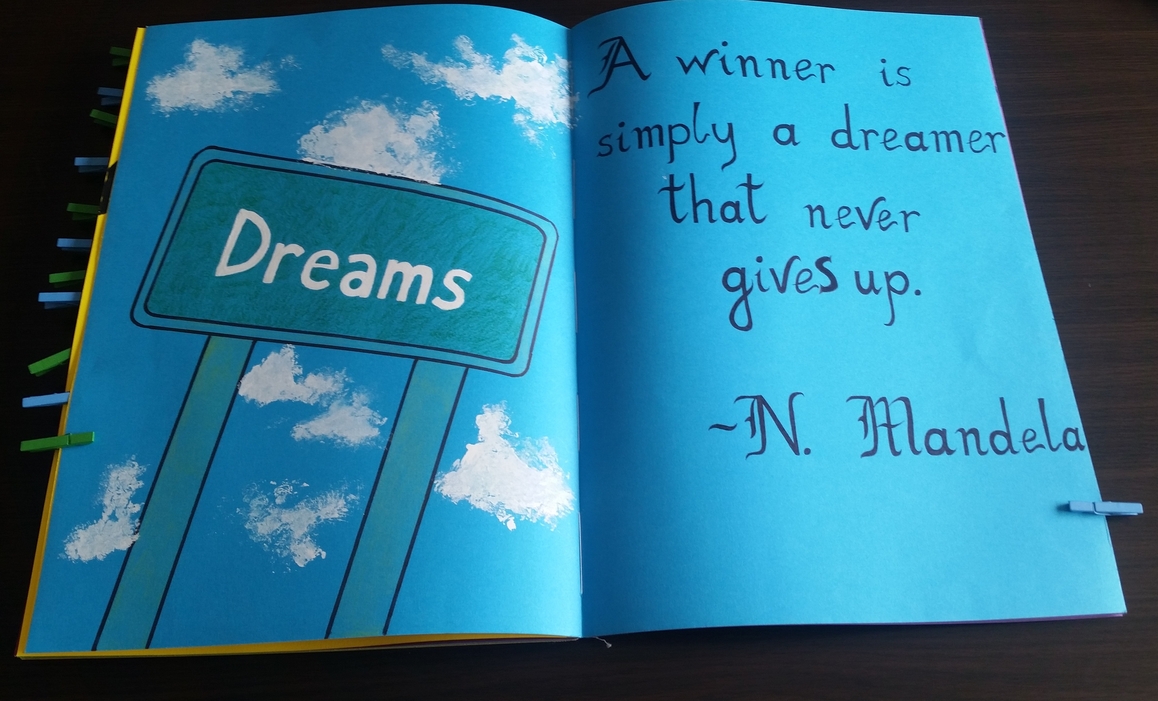 Dreams
A winner is
simply a dreamer
that never
gives up.
~N. Mandela